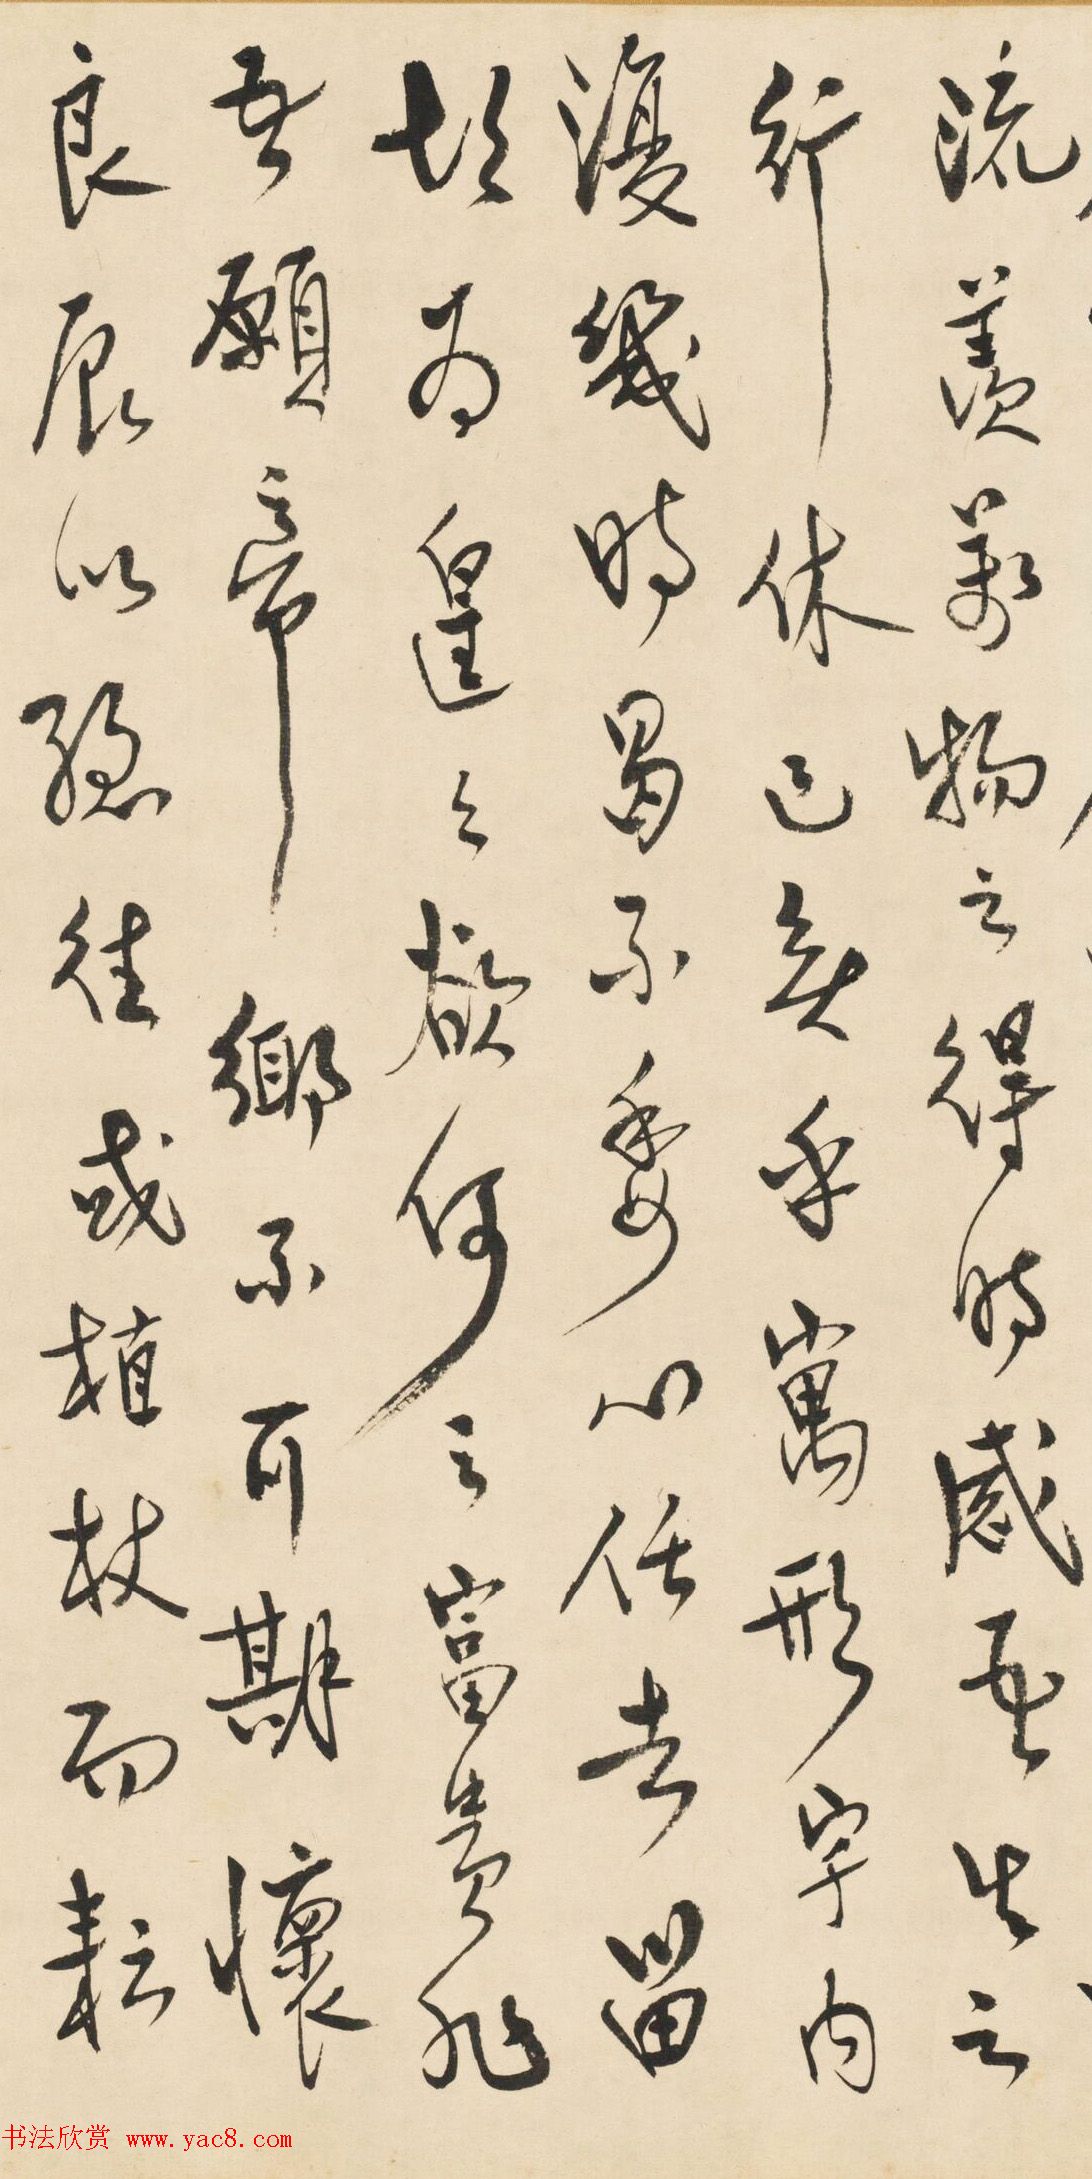 流羨萬物之得時感吾生之
行休已矣乎寓形宇內
復幾時曷不委心任去留
胡為遑々欲何之富貴非
吾願帝鄉不可期懷
良辰以孤往或植杖而耘
书法欣赏 www.yac8.com